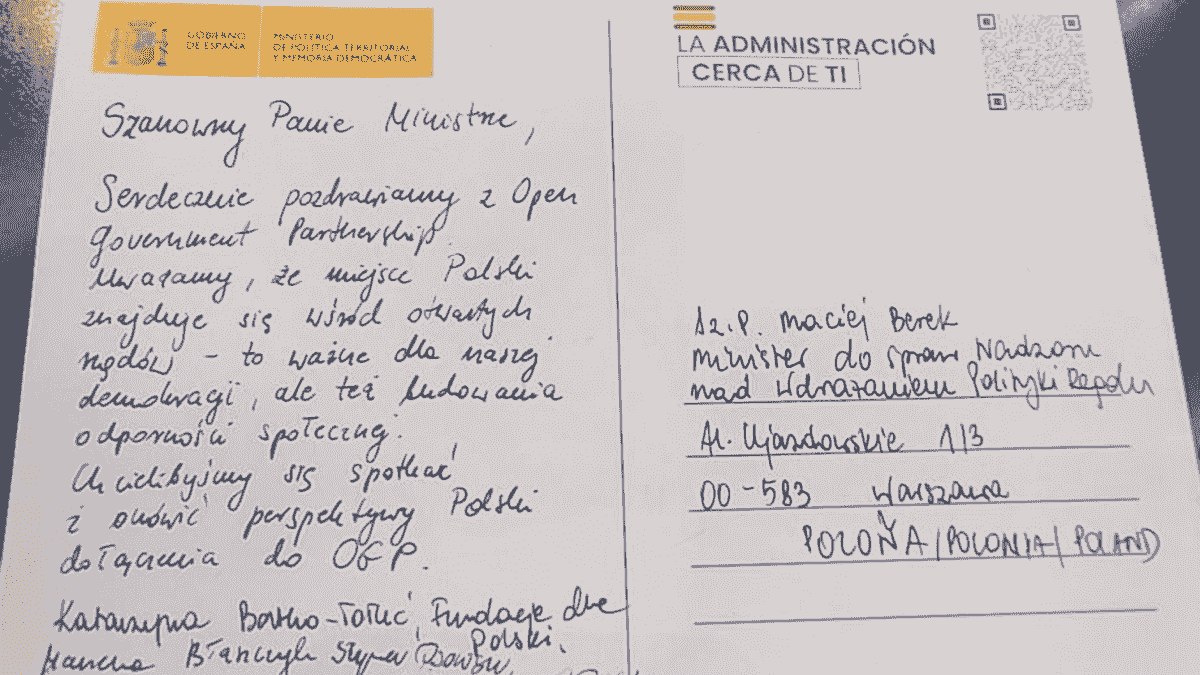 GOBIERNO
DE ESPAÑA
MINISTERIO
DE POLÍTICA TERRITORIAL
Y MEMORIA DEMOCRÁTICA
Szanowny Panie Ministrze,
Serdecznie pozdrawiamy z Open
Government Partnership.
Uważamy, że miejsce Polski
znajduje się wśród otwartych
rządów – to ważne dla naszej
demokracji, ale też budowania
odporności społecznej.
Chcielibyśmy się spotkać
i omówić perspektywy Polski
dołączenia do OGP.
Katarzyna Fundacja dla
Polski,
LA ADMINISTRACIÓN
CERCA DE TI
Sz.P. Maciej Berek
Minister do spraw Nadzoru
nad Wdrażaniem Polityki Rządu
Al. Ujazdowskie 1/3
00-583 Warszawa
POLOŇA/POLONIA/POLAND